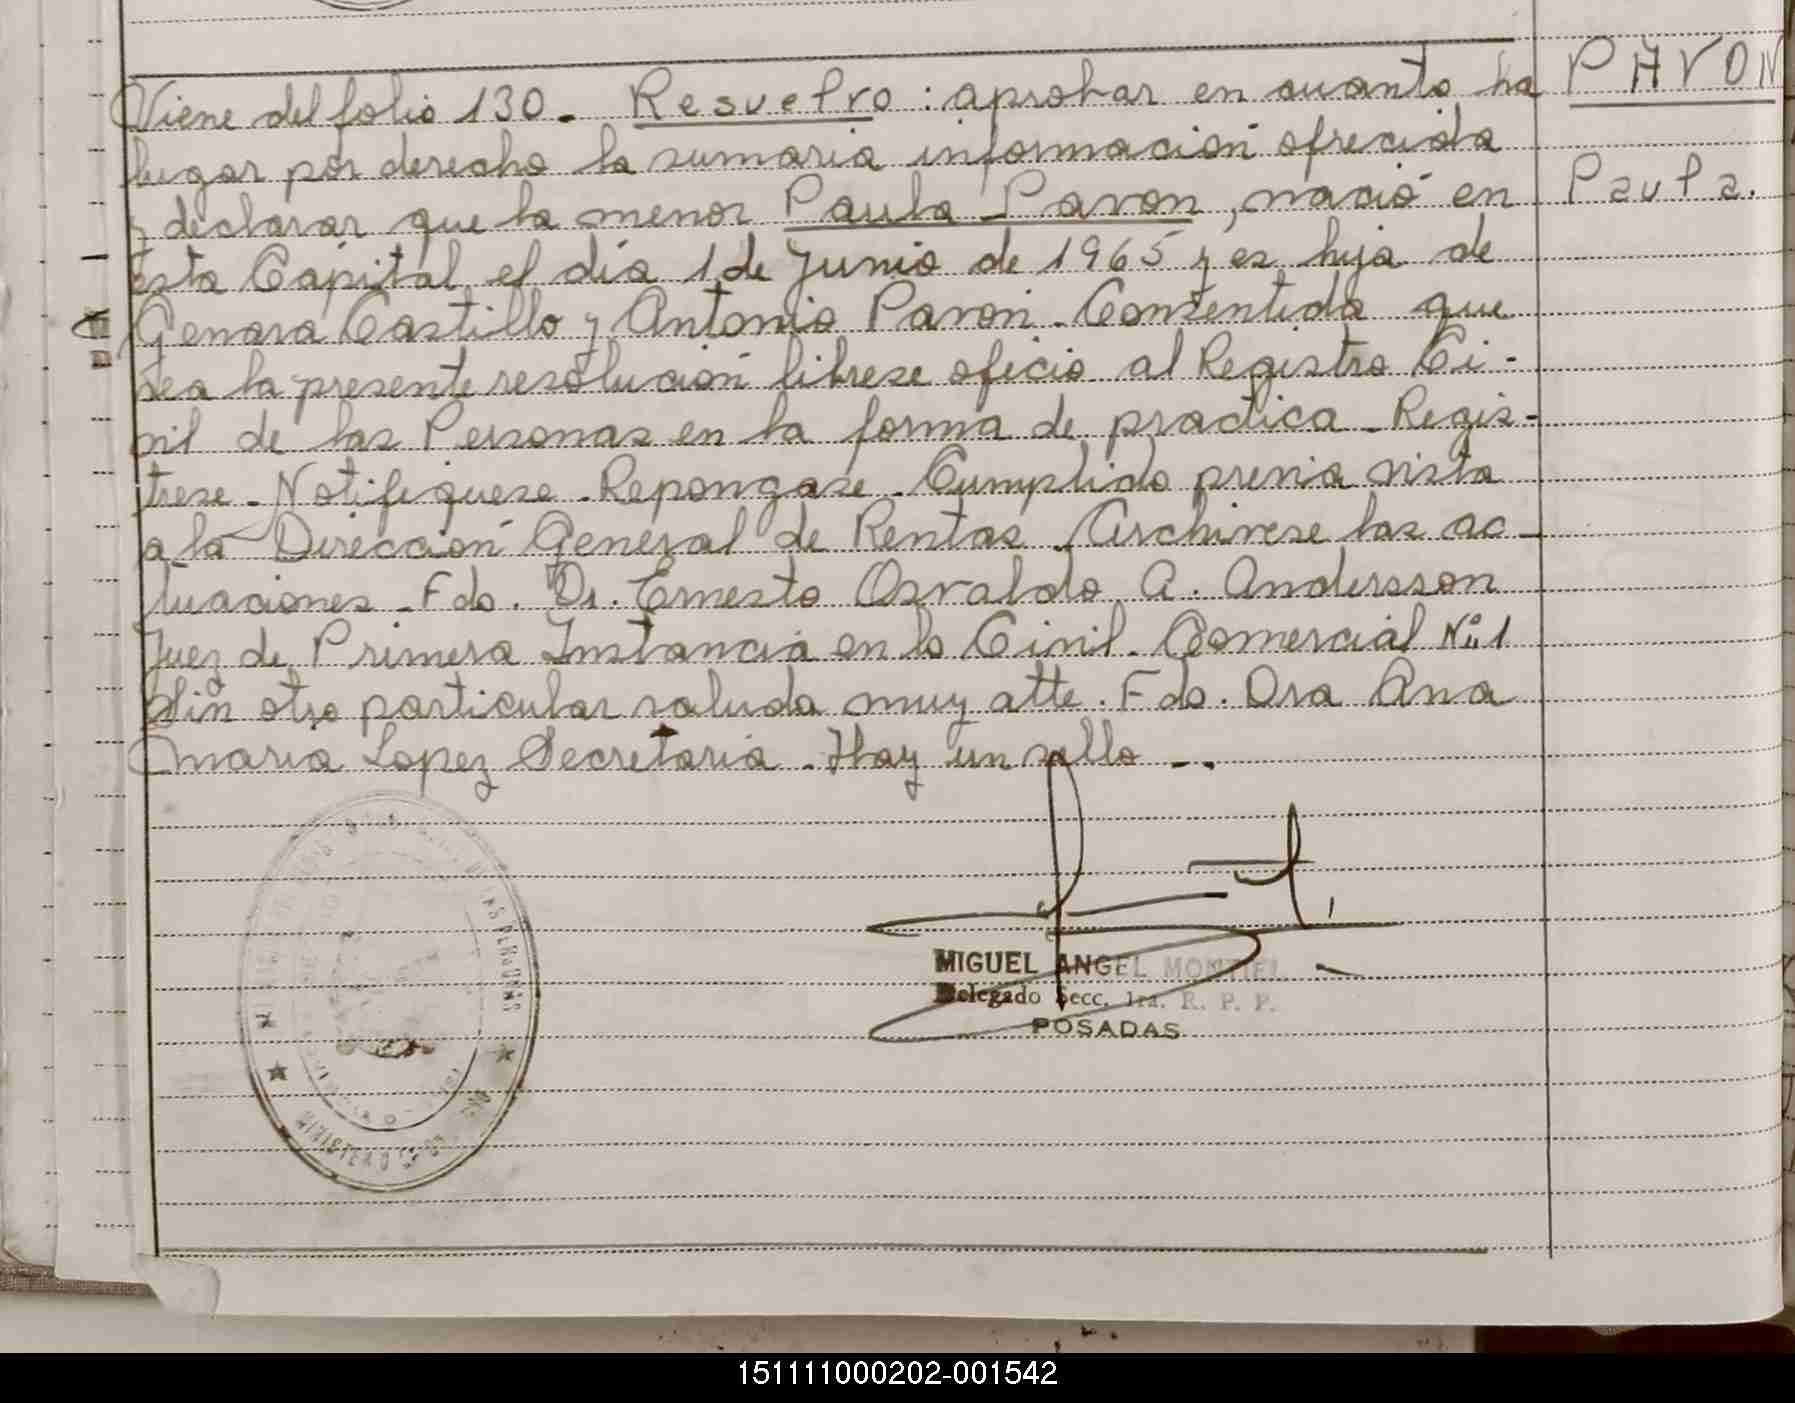 Viene del folio 130. Resuelvo: aprobar en cuanto ha
lugar por derecho la sumaria información ofrecida
y declarar que la menor Paula Pavon, nació en
esta Capital el día 1 de Junio de 1965 y es hija de
Genara Castillo y Antonio Pavon. Consentida que
sea la presente resolución librese oficio al Registro Ci-
vil de las Personas en la forma de practica. Regis-
trese. Notifiquese. Repongase. Cumplido previa vista
a la Dirección General de Rentas. Archivese las ac-
tuaciones. Fdo. Dr. Ernesto Osvaldo A. Andersson
Juez de Primera Instancia en lo Civil. Comercial Nº 1
Sin otro particular saluda muy atte. Fdo. Dra Ana
Maria Lopez Secretaria. Hay un sello --.
PAVON
Paula.
DE LAS PERSONAS
MIGUEL ANGEL MONTIEL
Delegado Secc. 1ra. R. P. P.
POSADAS
151111000202-001542